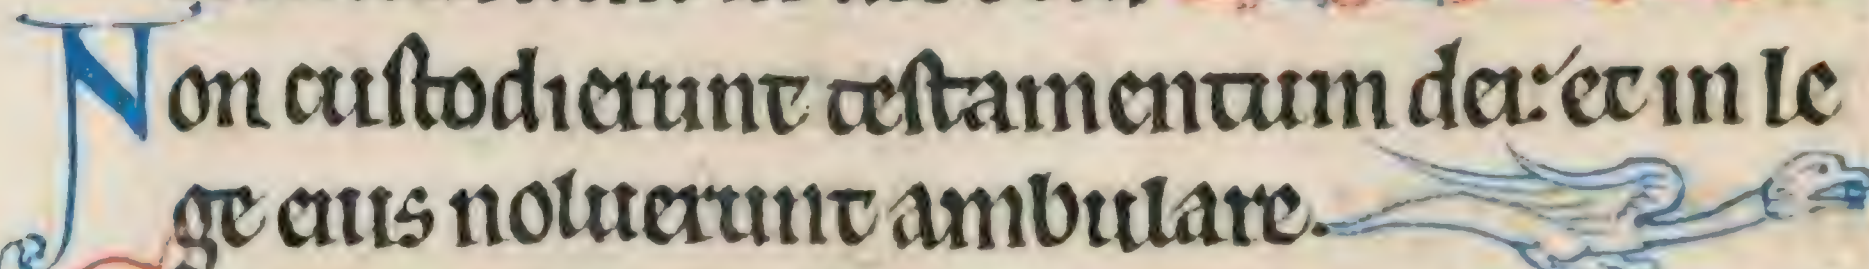 Non custodierunt testamentum dei: et in le
ge eius noluerunt ambulare.